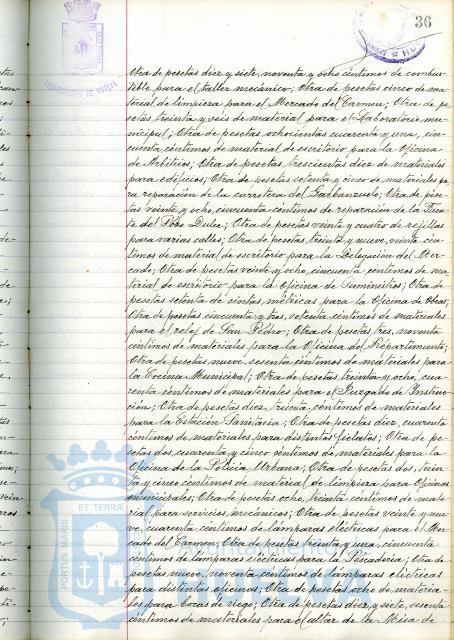 36
AYUNTAMIENTO DE HUELVA
Otra de pesetas diez y siete, noventa y ocho céntimos de combus-
tible para el taller mecánico; Otra de pesetas cinco de ma-
terial de limpieza para el Mercado del Carmen; Otra de pe-
setas treinta y seis de material para el Laboratorio mu-
nicipal; Otra de pesetas ochocientas cuarenta y una, cin-
cuenta céntimos de material de escritorio para la Oficina
de Arbitrios; Otra de pesetas trescientas diez de materiales
para edificios; Otra de pesetas setenta y cinco de materiales pa-
ra reparación de la carretera del Garbanzuelo; Otra de pese-
tas veinte y ocho, cincuenta céntimos de reparación de la Fuen-
te del Pozo Dulce; Otra de pesetas veinte y cuatro de rejillas
para varias calles; Otra de pesetas treinta y nueve, veinte cén-
timos de material de escritorio para la Delegación del Mer-
cado; Otra de pesetas veinte y ocho, cincuenta céntimos de ma-
terial de escritorio para la Oficina de Suministros; Otra de
pesetas setenta de cintas métricas para la Oficina de Obras;
Otra de pesetas cincuenta y tres, setenta céntimos de materiales
para el reloj de San Pedro; Otra de pesetas tres, noventa
céntimos de materiales para la Oficina del Repartimiento;
Otra de pesetas nueve, sesenta céntimos de materiales para
la Cocina Municipal; Otra de pesetas treinta y ocho, cua-
renta céntimos de materiales para el Juzgado de Instruc-
ción; Otra de pesetas diez, treinta céntimos de materiales
para la Estación Sanitaria; Otra de pesetas diez, cuarenta
céntimos de materiales para distintos fielatos; Otra de pe-
setas dos, cuarenta y cinco céntimos de materiales para la
Oficina de la Policía Urbana; Otra de pesetas dos, trein-
ta y cinco céntimos de material de limpieza para Oficinas
municipales; Otra de pesetas ocho, treinta céntimos de mate-
rial para servicios mecánicos; Otra de pesetas veinte y nue-
ve, cuarenta céntimos de lámparas eléctricas para el Mer-
cado del Carmen; Otra de pesetas treinta y una, cincuenta
céntimos de lámparas eléctricas para la Pescadería; Otra de
pesetas nueve, noventa céntimos de lámparas eléctricas
para distintas oficinas; Otra de pesetas ocho de materia-
les para bocas de riego; Otra de pesetas diez y siete, sesenta
céntimos de materiales para el altar de la Misa de
PORTUS MARIS ET TERRÆ